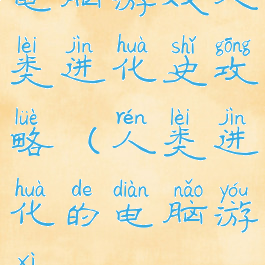 电脑游戏人
lèi jìn huà shǐ gōng
类进化史攻
lüè ( rén lèi jìn
略（人类进
huà de diàn nǎo yóu
化的电脑游
xì